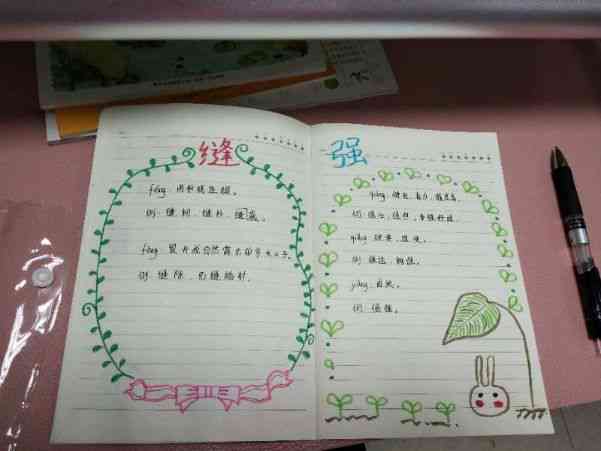 缝
féng: 用针线连缀。
例: 缝纫、缝补、缝
fèng: 裂开或自然露出的窄长口子
例: 缝隙、见缝插针.
强
qiáng: 健壮、有力、程度高。
例: 强
qiǎng: 硬要、迫使。
例: 强迫、勉强。
jiàng: 固执。
例: 倔强。